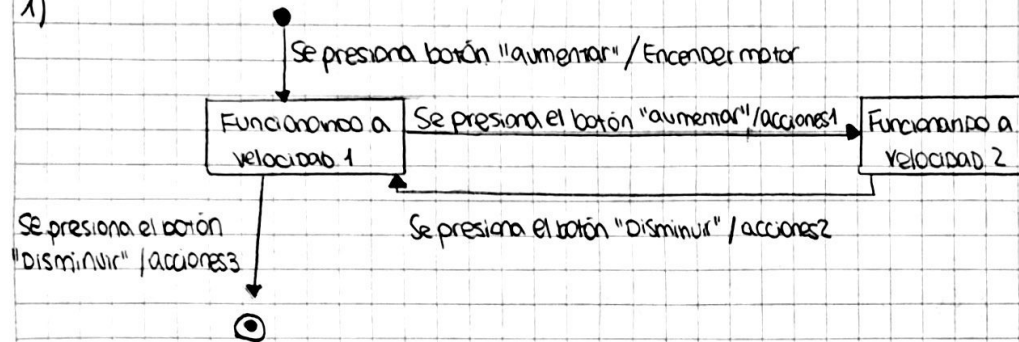 1)
Se presiona botón "aumentar" / Encender motor
Funcionando a
velocidad 1
Se presiona el botón "aumentar"/acciones1
Funcionando a
velocidad 2
Se presiona el botón "Disminuir" / acciones2
Se presiona el botón
"Disminuir" / acciones3